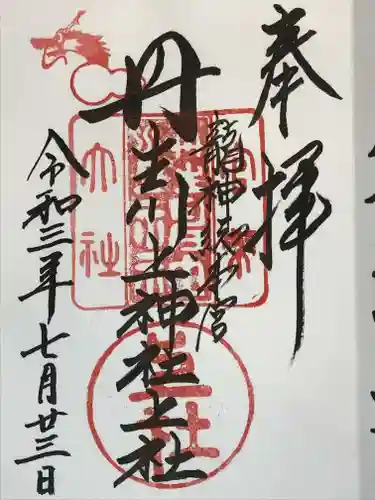 奉拝
龍神総本宮
丹生川上神社上社
令和三年七月廿三日
大社
上社